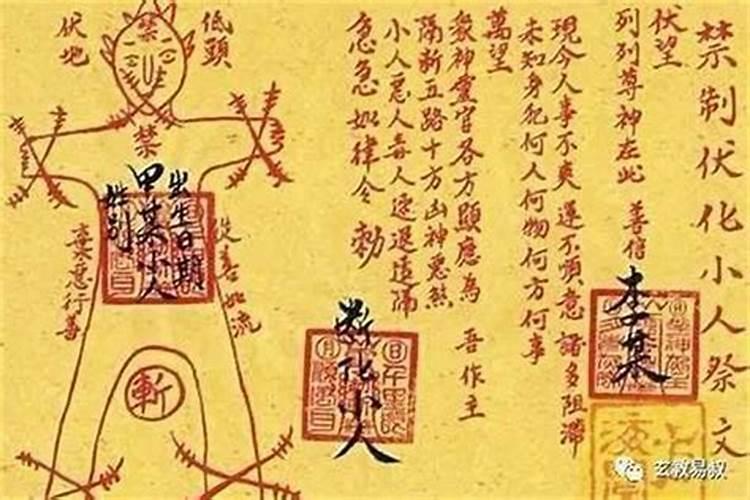 禁制伏化小人祭文
伏望
列列尊神在此 善信
李某
現今人事不爽運不順意諸多阻滯
未知身犯何人何物何方何事
萬望
衆神靈官各方顯應為 吾作主
隔斷五路十方凶神惡煞
小人惡人毒人速退遠隔
急急如律令 勅
斷化小人
低頭
伏地
禁
禁
出生日期
甲某小人
姓別
從善如流
棄惡行善
斬
玄教易叔